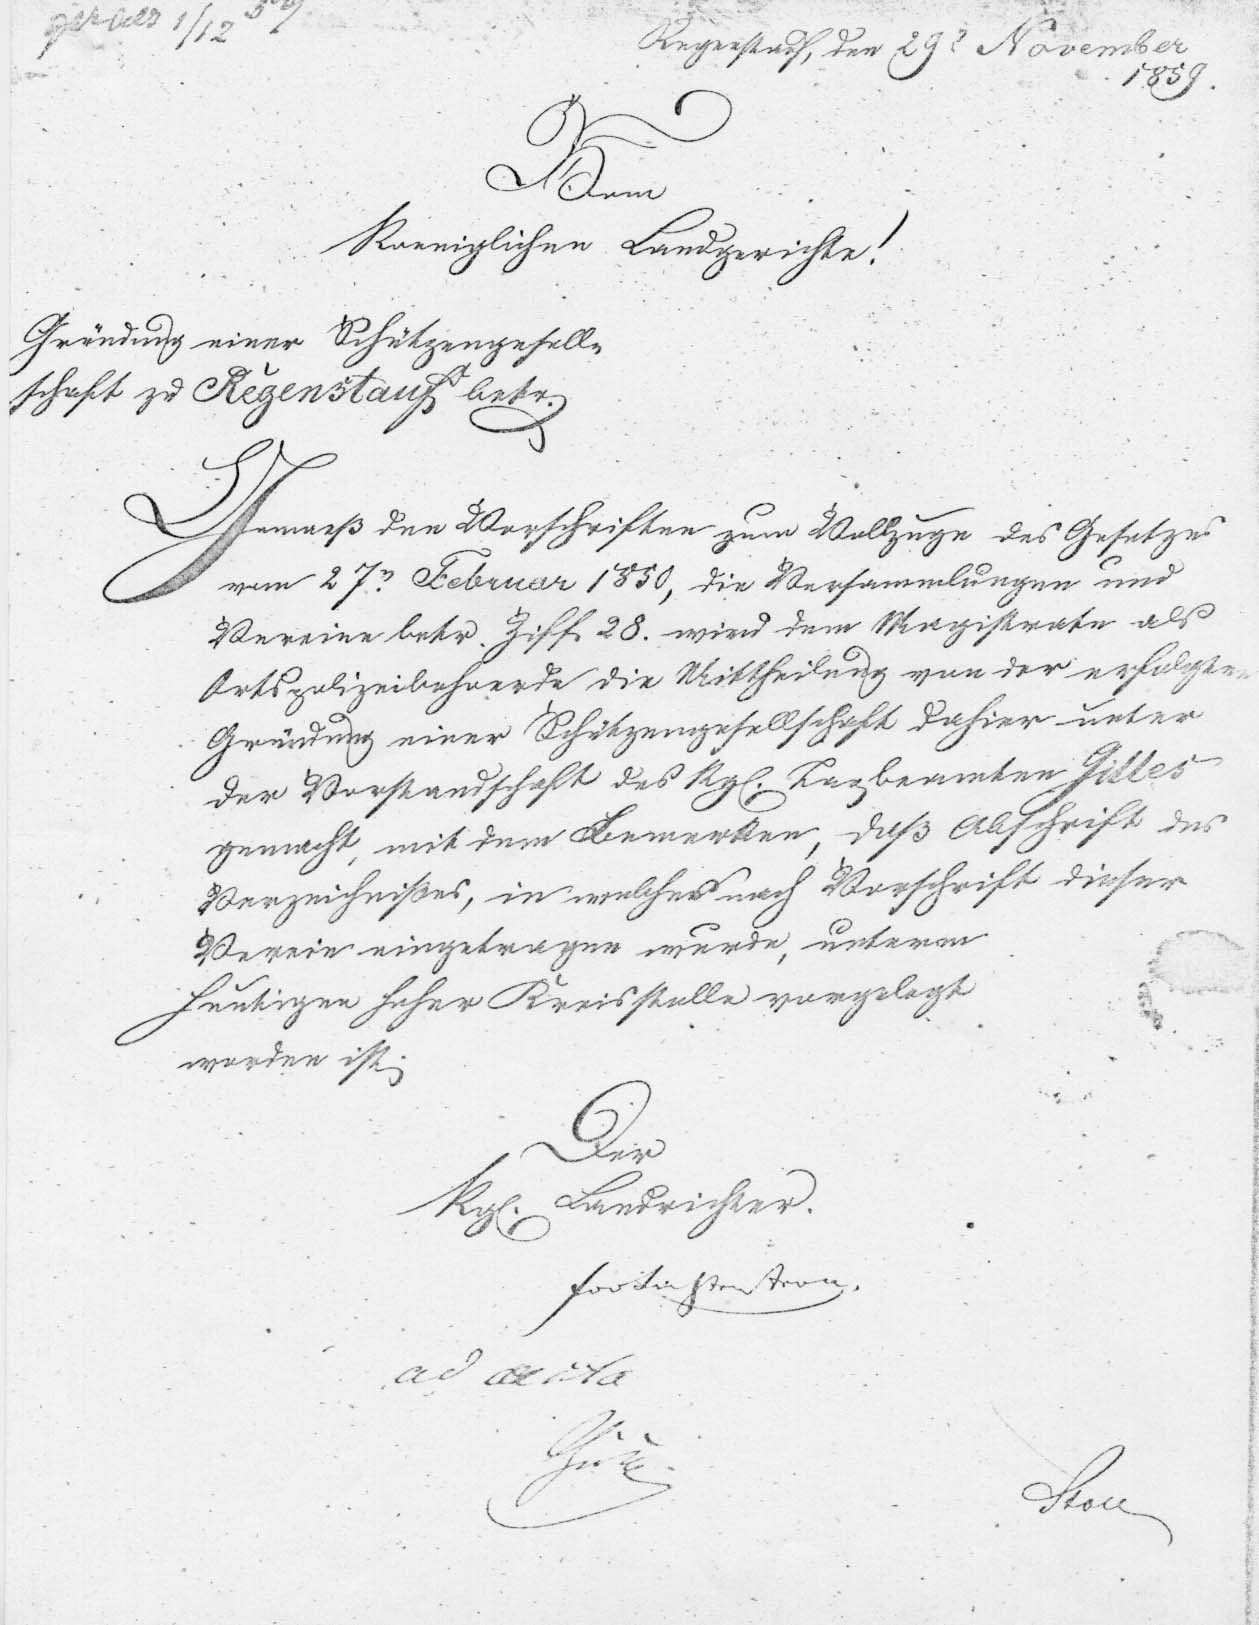 1/12 59
Regenstauf, den 29ⁿ November
1859.
Vom
Koeniglichen Landgerichte!
Gründung einer Schützengesell-
schaft zu Regenstauf betr.
Gemaeß den Vorschriften zum Vollzuge des Gesetzes
vom 27ⁿ Februar 1850, die Versammlungen und
Vereine betr. Ziff. 28. wird dem Magistrate als
Ortspolizeibehoerde die Mittheilung von der erfolgten
Gründung einer Schützengesellschaft dahier unter
der Vorstandschaft des Kgl. Taxbeamten
gemacht, mit dem Bemerken, daß Abschrift des
Verzeichnißes, in welches nach Vorschrift dieser
Verein eingetragen wurde, unterm
Heutigen hoher Kreisstelle vorgelegt
worden ist.
Der
Kgl. Landrichter.
ad acta
Stoll